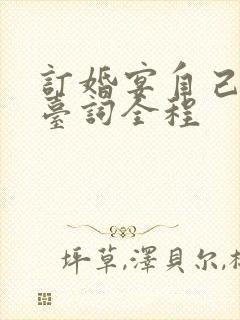 訂婚宴自己
臺詞全程
坪草,澤貝尔,林